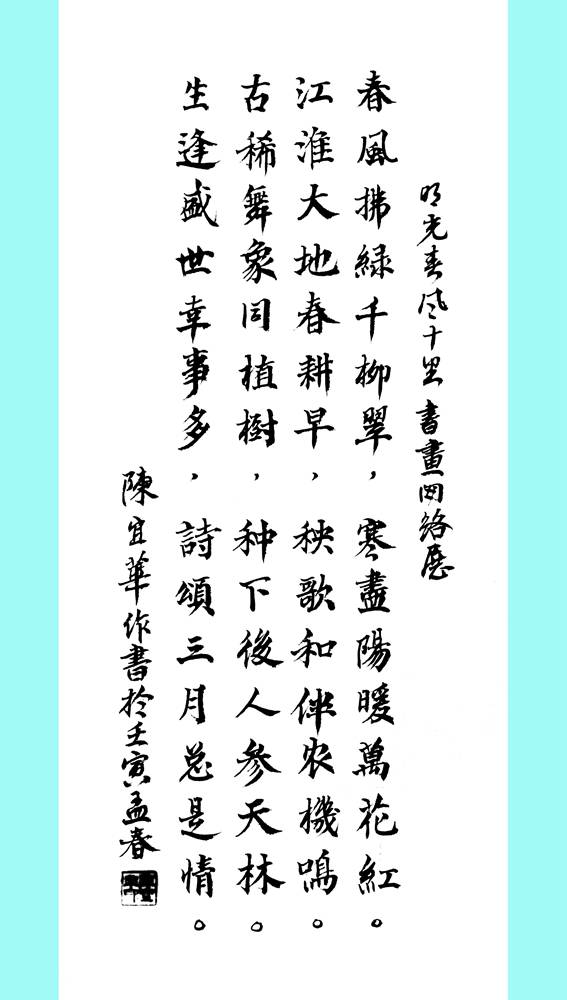 明光春风十里書畫网络展
春風拂綠千柳翠，寒盡陽暖萬花紅。
江淮大地春耕早，秧歌和伴农機鳴。
古稀舞象同植樹，种下後人参天林。
生逢盛世幸事多，詩頌三月总是情。
陳宜華作書於壬寅孟春